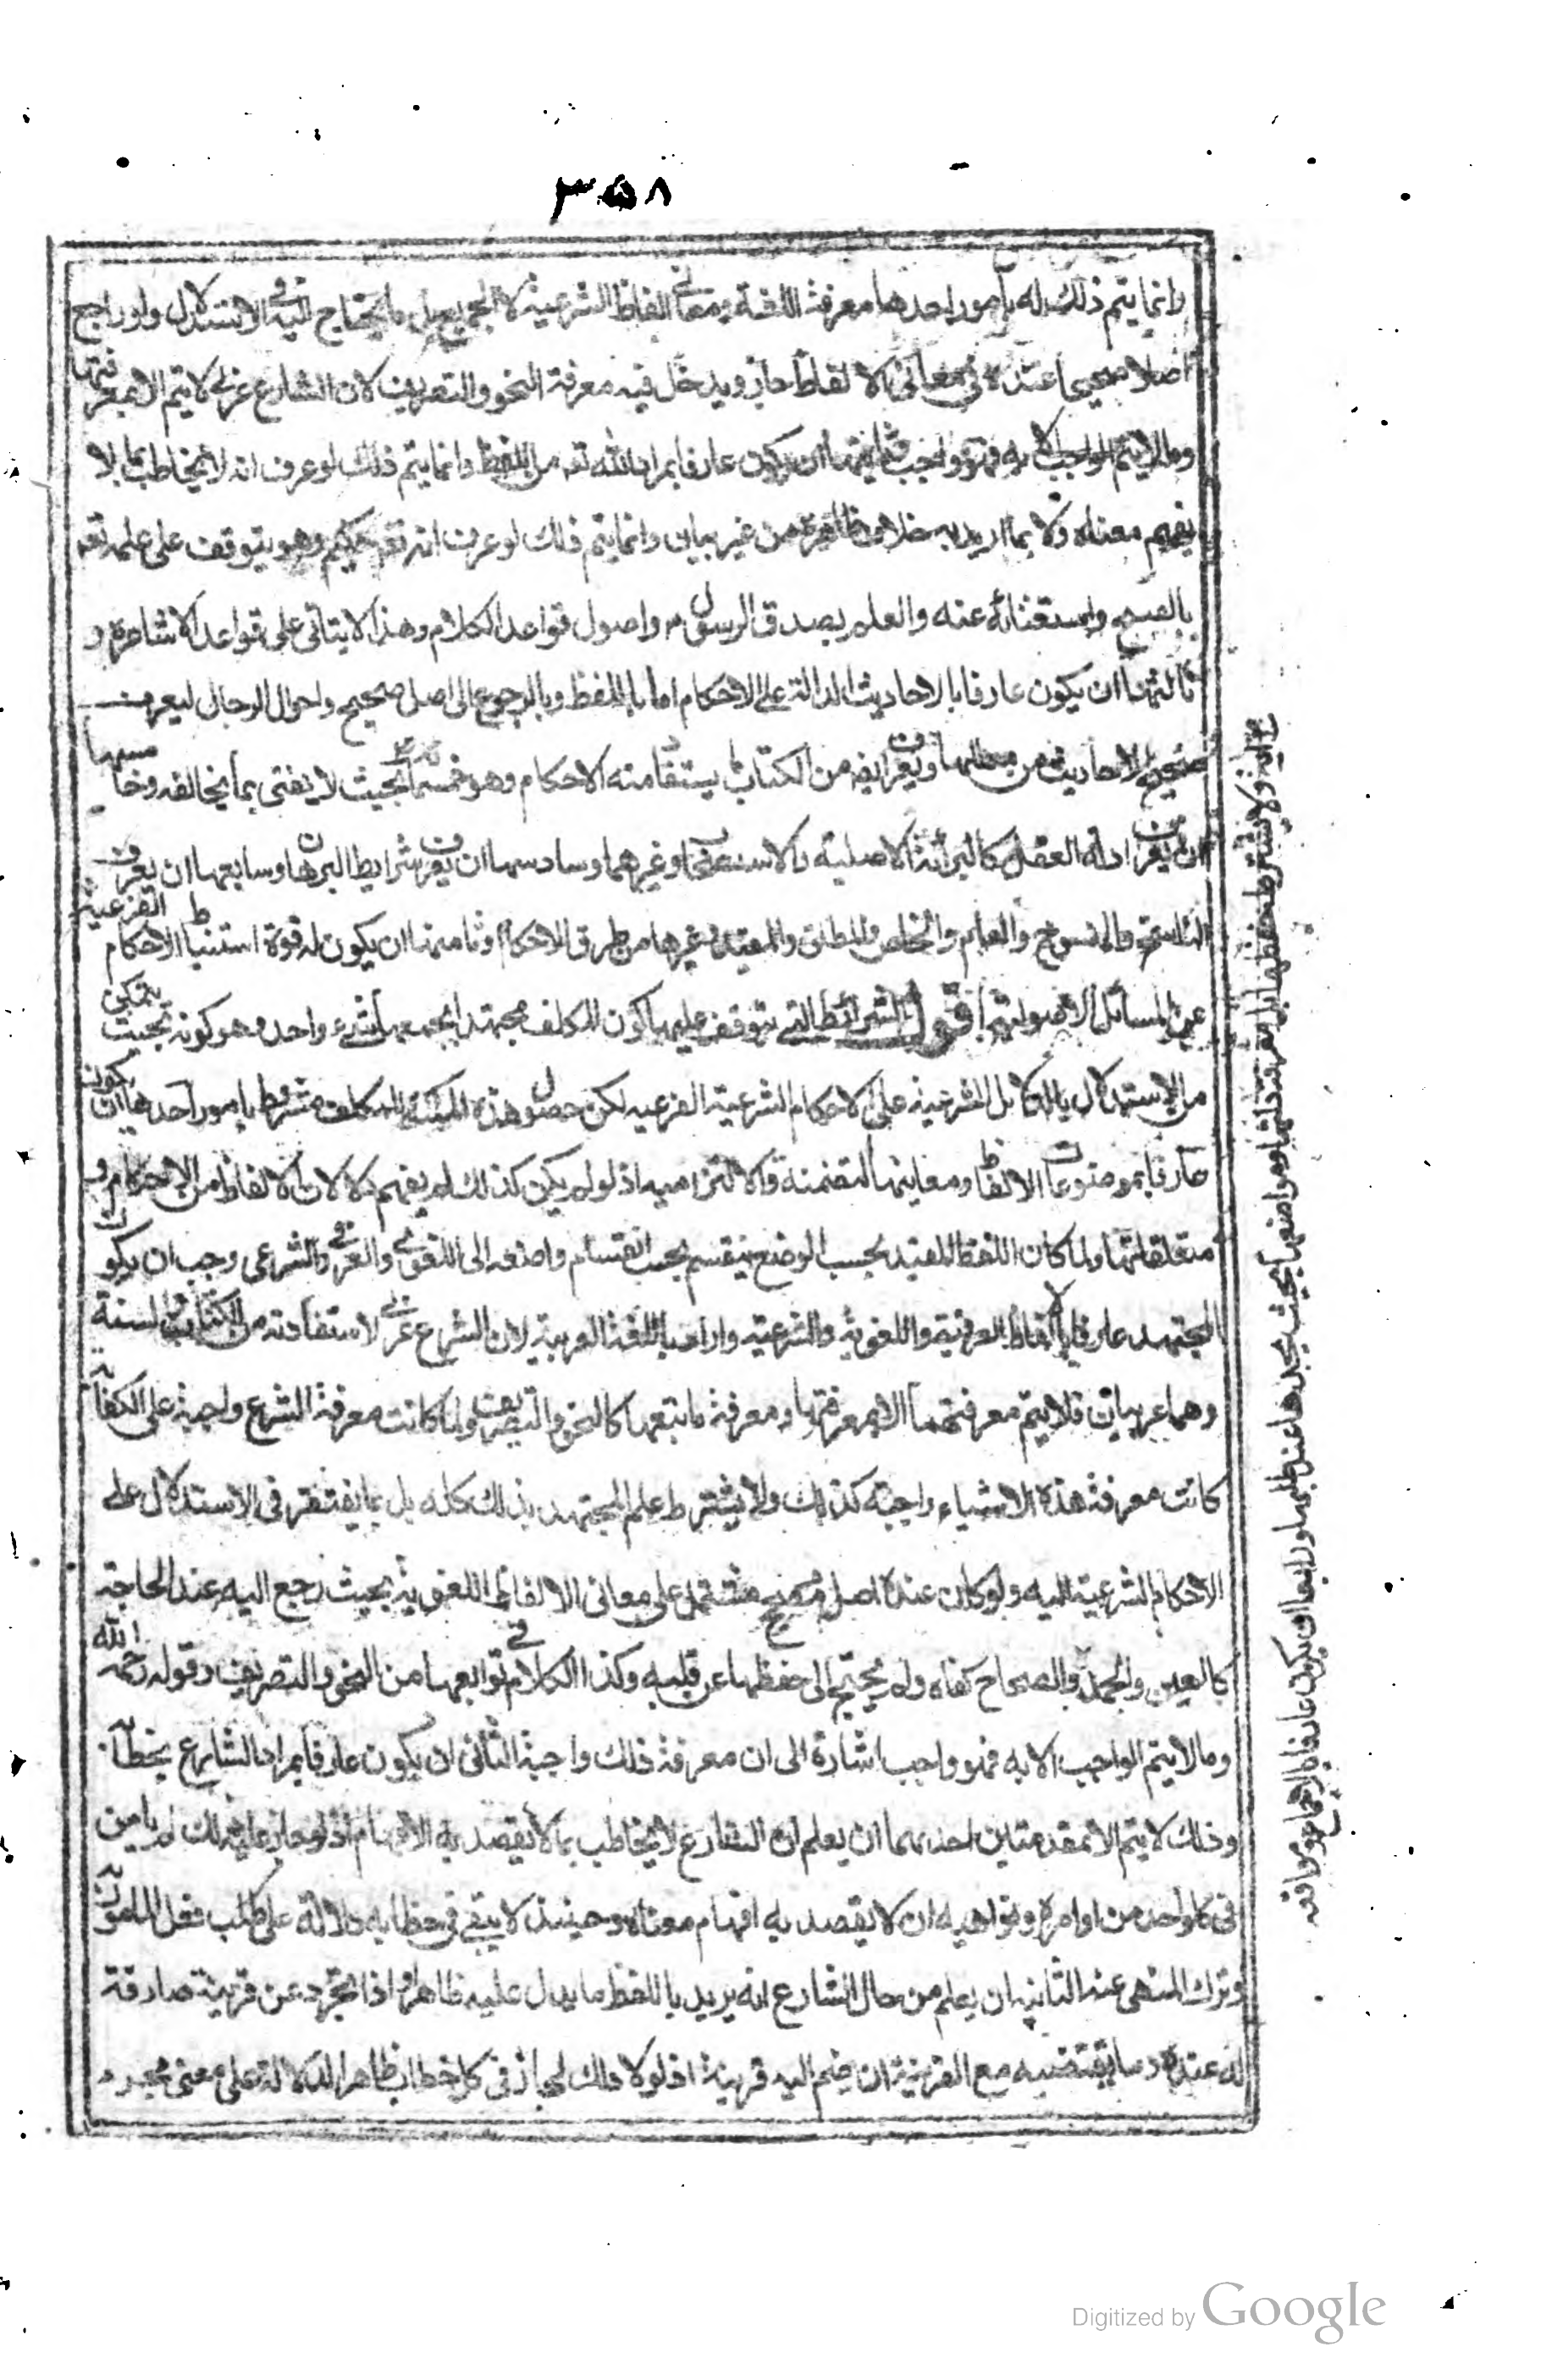 ٣٥٨
وانما يتم ذلك له بأمور احدها معرفة اللغة ومعانى الفاظ الشرعية لا الجميع بل ما يحتاج اليه فى الاستدلال ولو راجع
اصلا صحيحا عنده فى معانى الالفاظ جاز ويدخل فيه معرفة النحو والتصريف لان الشارع عربى لا يتم الا بمعرفتهما
وما لا يتم الواجب الا به فهو واجب وثانيهما ان يكون عارفا بمراد الله تعـ من اللفظ وانما يتم ذلك لو عرف انه لا يخاطب بما لا
يفهم معناه ولا بما اريد به خلاف ظاهره من غير بيان وانما يتم ذلك لو عرف انه تعـ حكيم وهو يتوقف على علمه تعـ
بالقبيح واستغنائه عنه والعلم بصدق الرسول م واصول قواعد الكلام وهذا لا يتاتى على قواعد الاشاعرة و
ثالثها ان يكون عارفا بالاحاديث الدالة على الاحكام اما باللفظ وبالرجوع الى اصل صحيح واحوال الرجال ليعرف
صحيح الاحاديث من معتلها ويعرف ايضا من الكتاب ما يستفاد منه الاحكام وهو خمسمائة اية بحيث لا يفتى بما يخالفه وخامسها
ان يعرف ادلة العقل كالبرائة الاصلية والاستصحاب وغيرهما وسادسها ان يعرف شرايط البرهان وسابعها ان يعرف
الناسخ والمنسوخ والعام والخاص والمطلق والمقيد وغيرها من طرق الاحكام وثامنها ان يكون له قوة استنباط الاحكام الفرعية
عن المسائل الاصولية اقول الشرائط التى يتوقف عليها كون المكلف مجتهدا يجمعها شىء واحد وهو كونه بحيث يتمكن
من الاستدلال بالدلائل الشرعية على الاحكام الشرعية الفرعيه لكن حصول هذه المكنة للمكلف مشروط بامور احدها ان يكون
عارفا بموضوعات الالفاظ ومعانيها التضمنة والالتزاميه اذ لو لم يكن كذلك لم يفهم دلالات الالفاظ من الاحكام و
متعلقاتها ولما كان اللفظ المفيد بحسب الوضع ينقسم بحسب انقسام واضعه الى اللغوى والعرفى والشرعى وجب ان يكون
المجتهد عارفا بالالفاظ العرفية واللغوية والشرعيه واراد باللغة العربية لان الشرع عربى لاستفادته من الكتاب والسنة
وهما عربيان فلا يتم معرفتهما الا بمعرفتها ومعرفة ما تبعها كالنحو والتصريف ولما كانت معرفة الشرع واجبة على الكفاية
كانت معرفة هذه الاشياء واجبة كذلك ولا يشترط علم المجتهد بذلك كله بل بما يفتقر فى الاستدلال على
الاحكام الشرعية اليه ولو كان عنده اصل صحيح مشتمل على معانى الالفاظ اللغوية بحيث رجع اليه عند الحاجة
كالعين والمجمل والصحاح كفاه ولم يحتج الى حفظها عن قلبه وكذا الكلام فى توابعها من النحو والتصريف وقوله رحمه الله
وما لا يتم الواجب الا به فهو واجب اشارة الى ان معرفة ذلك واجبة الثانى ان يكون عارفا بمراد الشارع بخطابه
وذلك لا يتم الا بمقدمتين احدهما ان يعلم ان الشارع لا يخاطب بما لا يقصد به الافهام اذ لو جاز عليه ذلك لم يامن
فى كل واحد من اوامره ونواهيه ان لا يقصد به افهام معناه وحينئذ لا يبقى فى خطابه دلالة على طلب فعل المامور به
وترك المنهى عنه الثانيه ان يعلم من حال الشارع انه يريد باللفظ ما يدل عليه ظاهره اذا تجرد عن قرينة صارفة
له عنده وما يقتضيه مع القرينة ان ضم اليه قرينة اذ لولا ذلك لجاز فى كل خطاب ظاهر الدلالة على معنى مجرد
ولا يشترط حفظها بل معرفة دلالتها ومواضعها بحيث يجدها عند طلبها ورابعها ان يكون عارفا بالاجماع ومواقعه
Digitized by Google